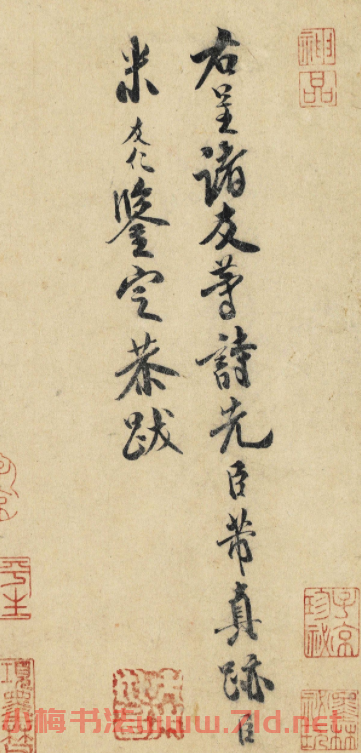 右呈諸友等詩先臣芾真跡臣
米友仁鑒定恭跋
神品
子京
珍祕
平生
小梅书法www.7ld.net